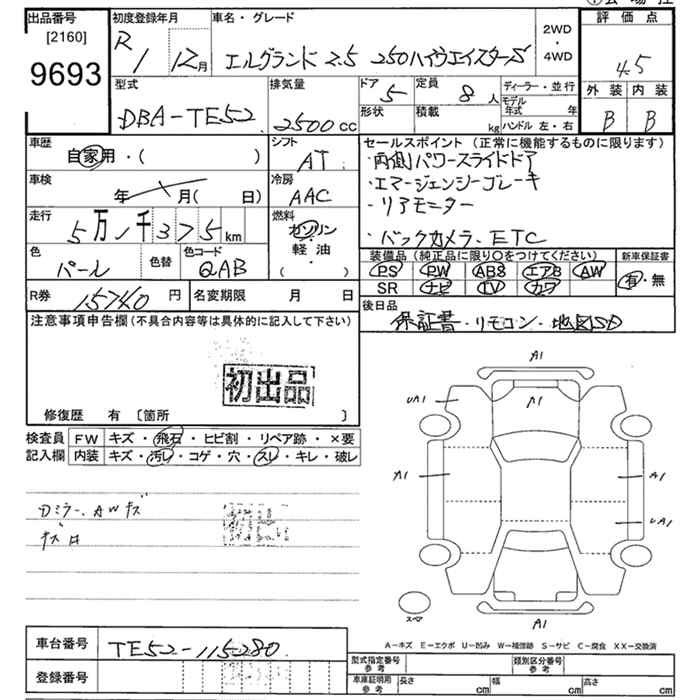 出品番号 初度登録年月 車名・グレード 2WD・4WD 評価点
[2160]
9693
R1 12月 エルグランド 2.5 250ハイウェイスターS 4.5
型式 排気量 ドア 定員 ディーラー・並行 外装 内装
DBA-TE52 2500cc 5 8人 モデル年式 年 B B
形状 積載 kg ハンドル 左・右
車歴 自家用・( ) シフト AT
セールスポイント(正常に機能するものに限ります)
・両側パワースライドドア
・エマージェンシーブレーキ
・リアモニター
・バックカメラ、ETC
車検 年 月( 日) 冷房 AAC
走行 5万1千375km 燃料 ガソリン・軽油・( )
色 パール 色替 色コード QAB
装備品(純正品に限り○をつけてください) 新車保証書
PS PW ABS エアB AW 有・無
SR ナビ TV カワ
R券 15740円 名変期限 月 日
後日品
保証書・リモコン・地図SD
注意事項申告欄(不具合内容等は具体的に記入して下さい)
初出品
修復歴 有 〔箇所 〕
検査員記入欄 FW キズ・飛石・ヒビ割・リペア跡・×要
内装 キズ・汚レ・コゲ・穴・スレ・キレ・破レ
Dミラー、AWキズ
A1
UA1 A1
A1 A1
UA1
A1
スペア
A-キズ E-エクボ U-凹み W-補修跡 S-サビ C-腐食 XX-交換済
車台番号 TE52-115280
登録番号
型式指定番号 参考 類別区分番号 参考
車庫証明用 参考 長さ cm 幅 cm 高さ cm